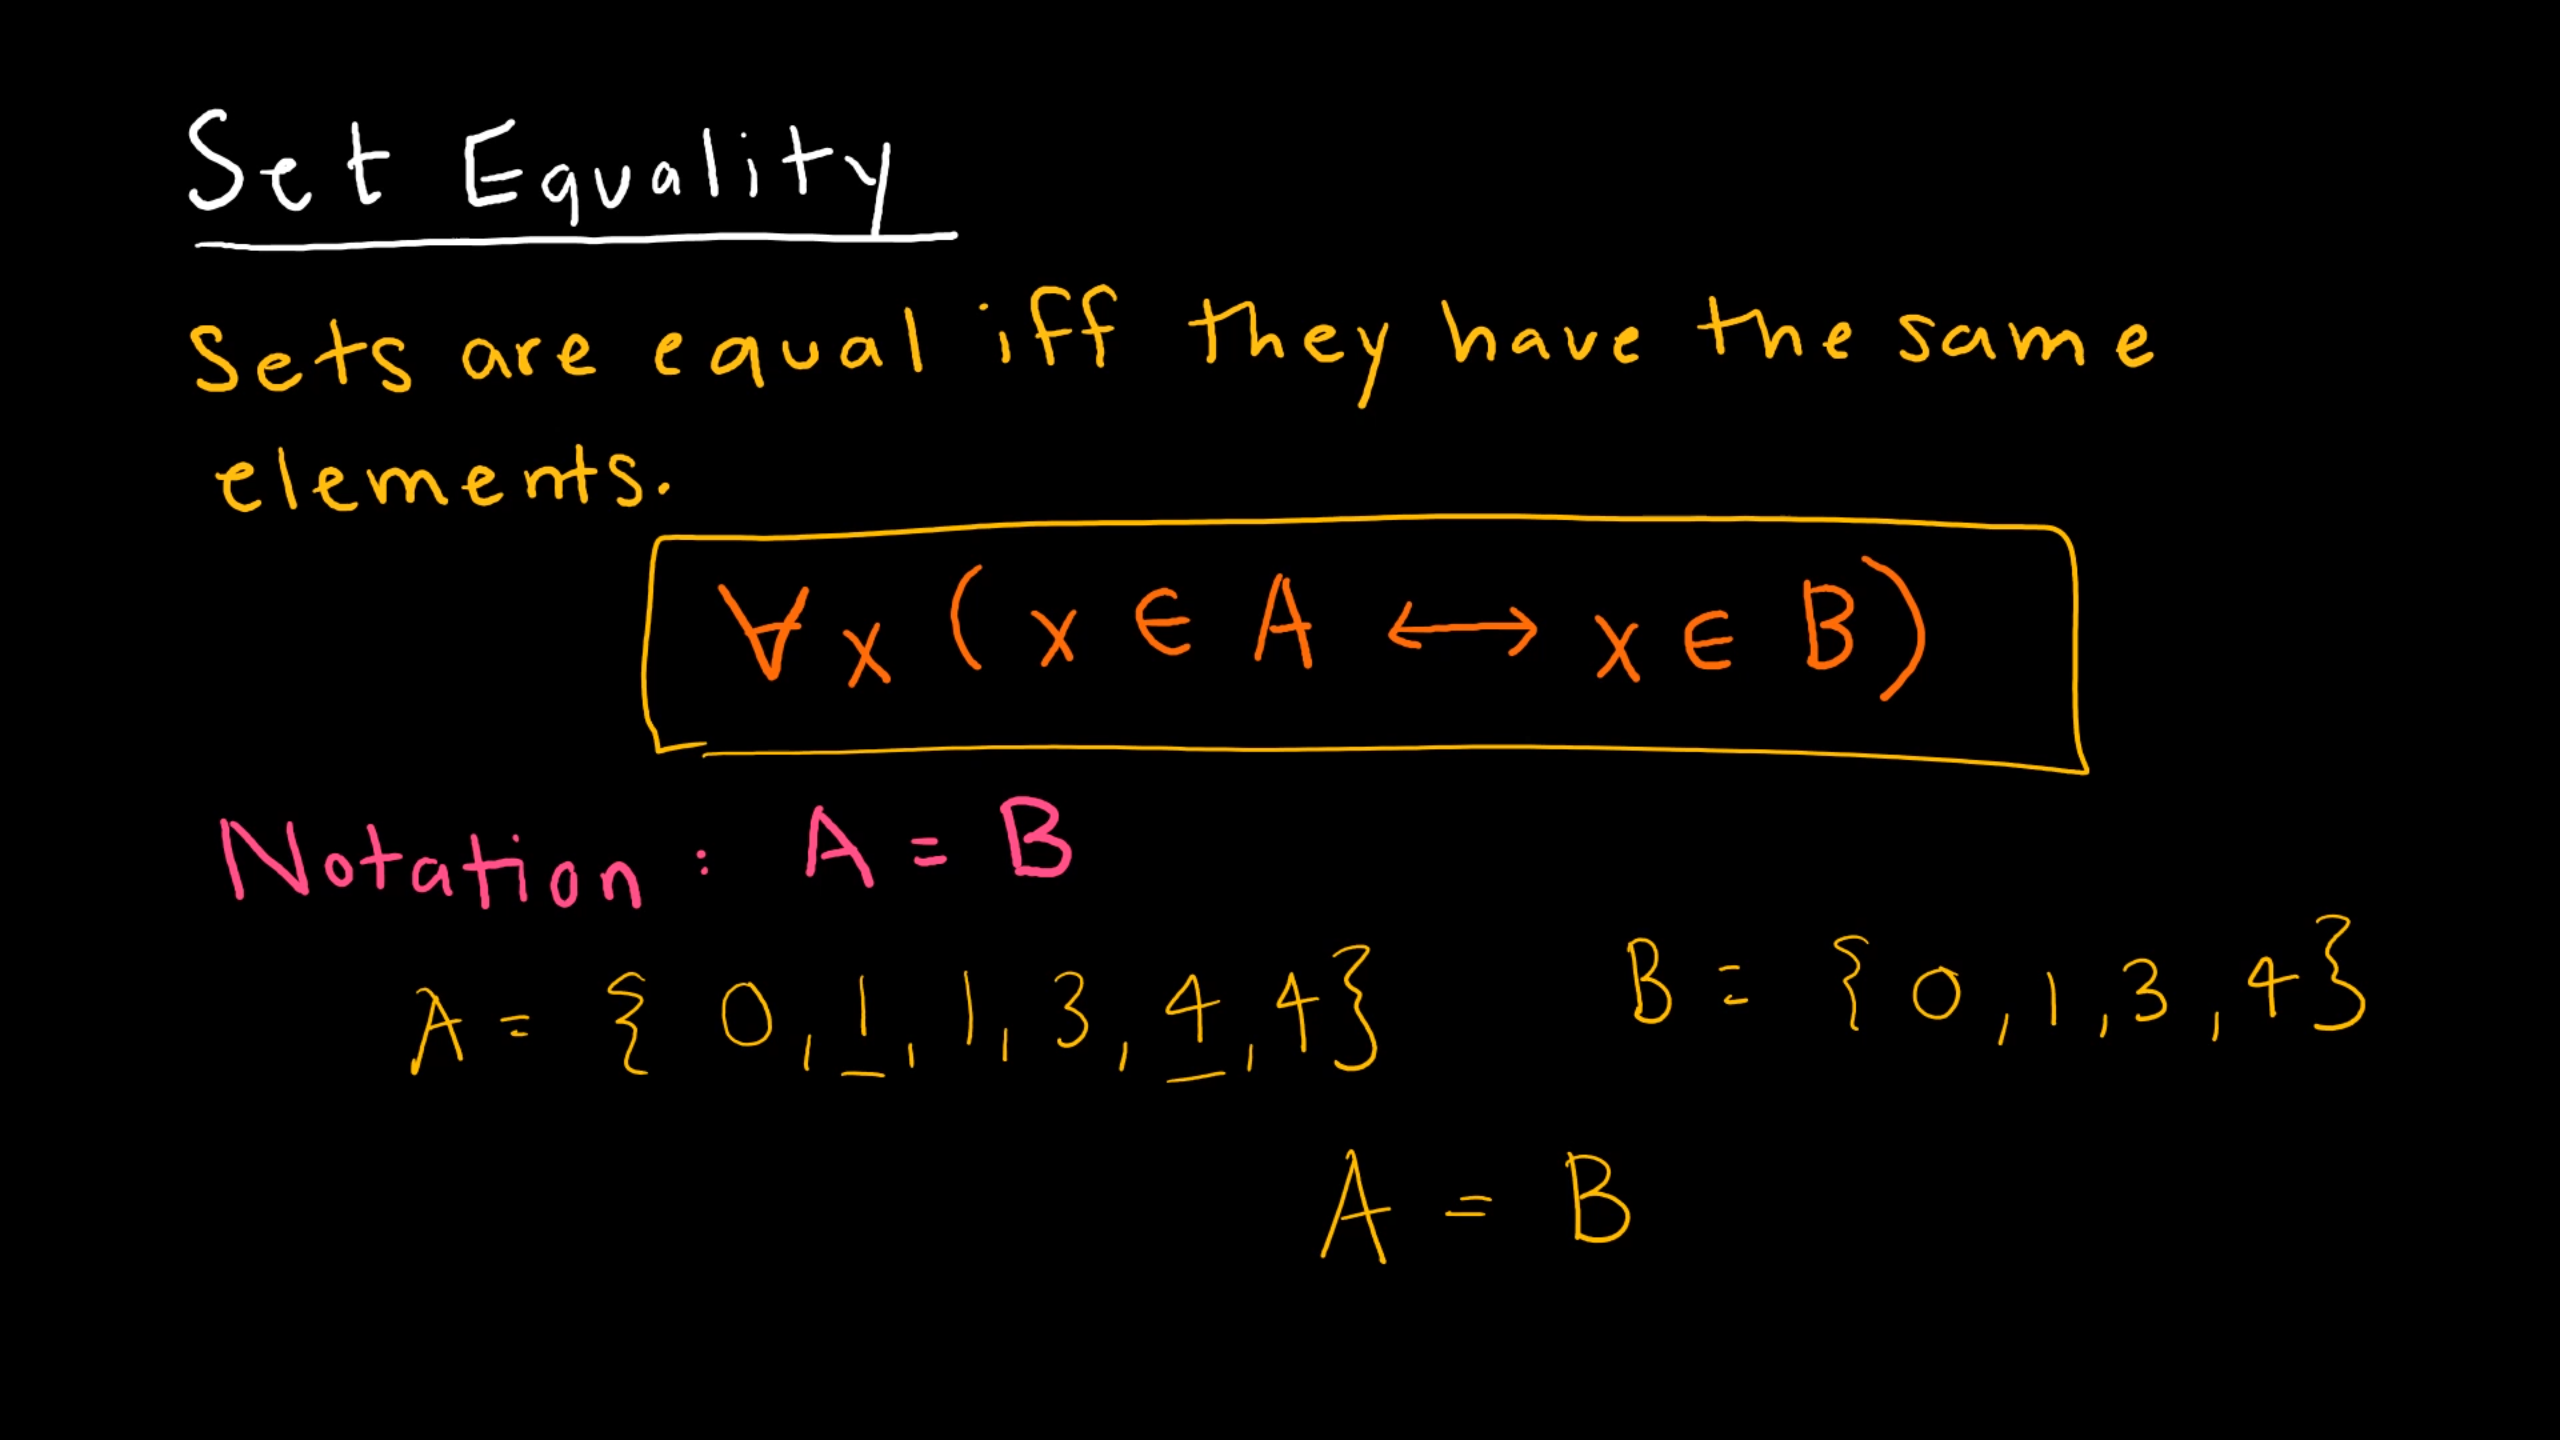 Set Equality
Sets are equal iff they have the same
elements.
∀x (x ∈ A ↔ x ∈ B)
Notation: A = B
A = { 0, 1, 1, 3, 4, 4} B = {0, 1, 3, 4}
A = B